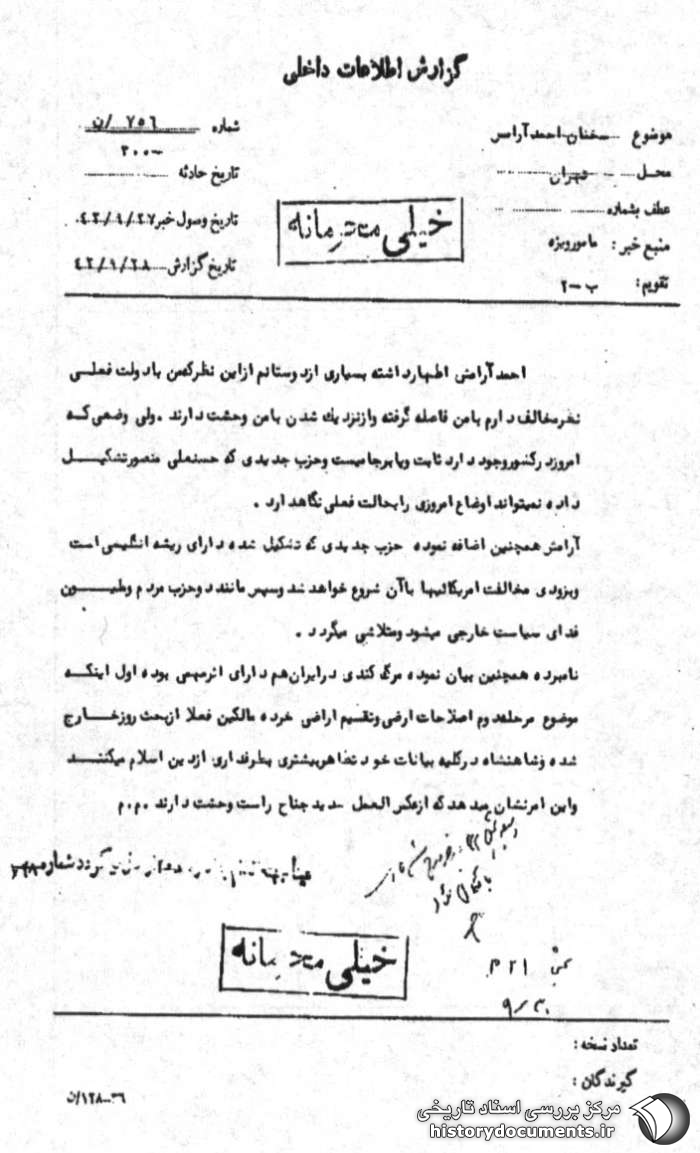 گزارش اطلاعات داخلی
موضوع سخنان احمد آرامش
محل تهران
عطف بشماره
منبع خبر : مامور ویژه
تقویم : ب-۲
شماره ۷۵۶ /ن
۳۰۰
تاریخ حادثه
تاریخ وصول خبر ۴۲/۹/۲۷
تاریخ گزارش ۴۲/۹/۲۸
خیلی محرمانه
احمد آرامش اظهار داشته بسیاری از دوستانم از این نظر که من با دولت فعلی
نظر مخالف دارم با من فاصله گرفته و از نزدیك شدن با من وحشت دارند . ولی وضعی که
امروز در کشور وجود دارد ثابت و پابرجا نیست و حزب جدیدی که حسنعلی منصور تشکیل
داده نمیتواند اوضاع امروزی را بحالت فعلی نگاهدارد .
آرامش همچنین اضافه نموده حزب جدیدی که تشکیل شده دارای ریشه انگلیسی است
و بزودی مخالفت امریکائیها با آن شروع خواهد شد و سپس مانند دو حزب مردم و ملیون
فدای سیاست خارجی میشود و متلاشی میگردد .
نامبرده همچنین بیان نموده مرگ کندی در ایران هم دارای اثر مهمی بوده اول اینکه
موضوع مرحله دوم اصلاحات ارضی و تقسیم اراضی خرده مالکین فعلا از بحث روز خارج
شده و شاهنشاه در کلیه بیانات خود تظاهر بیشتری بطرفداری از دین اسلام میکنند
و این امر نشان میدهد که از عکس العمل شدید جناح راست وحشت دارند . م.م
خیلی محرمانه
۲۱ م
۹/۳۰
تعداد نسخه :
گیرندگان :
مرکز بررسی اسناد تاریخی
historydocuments.ir